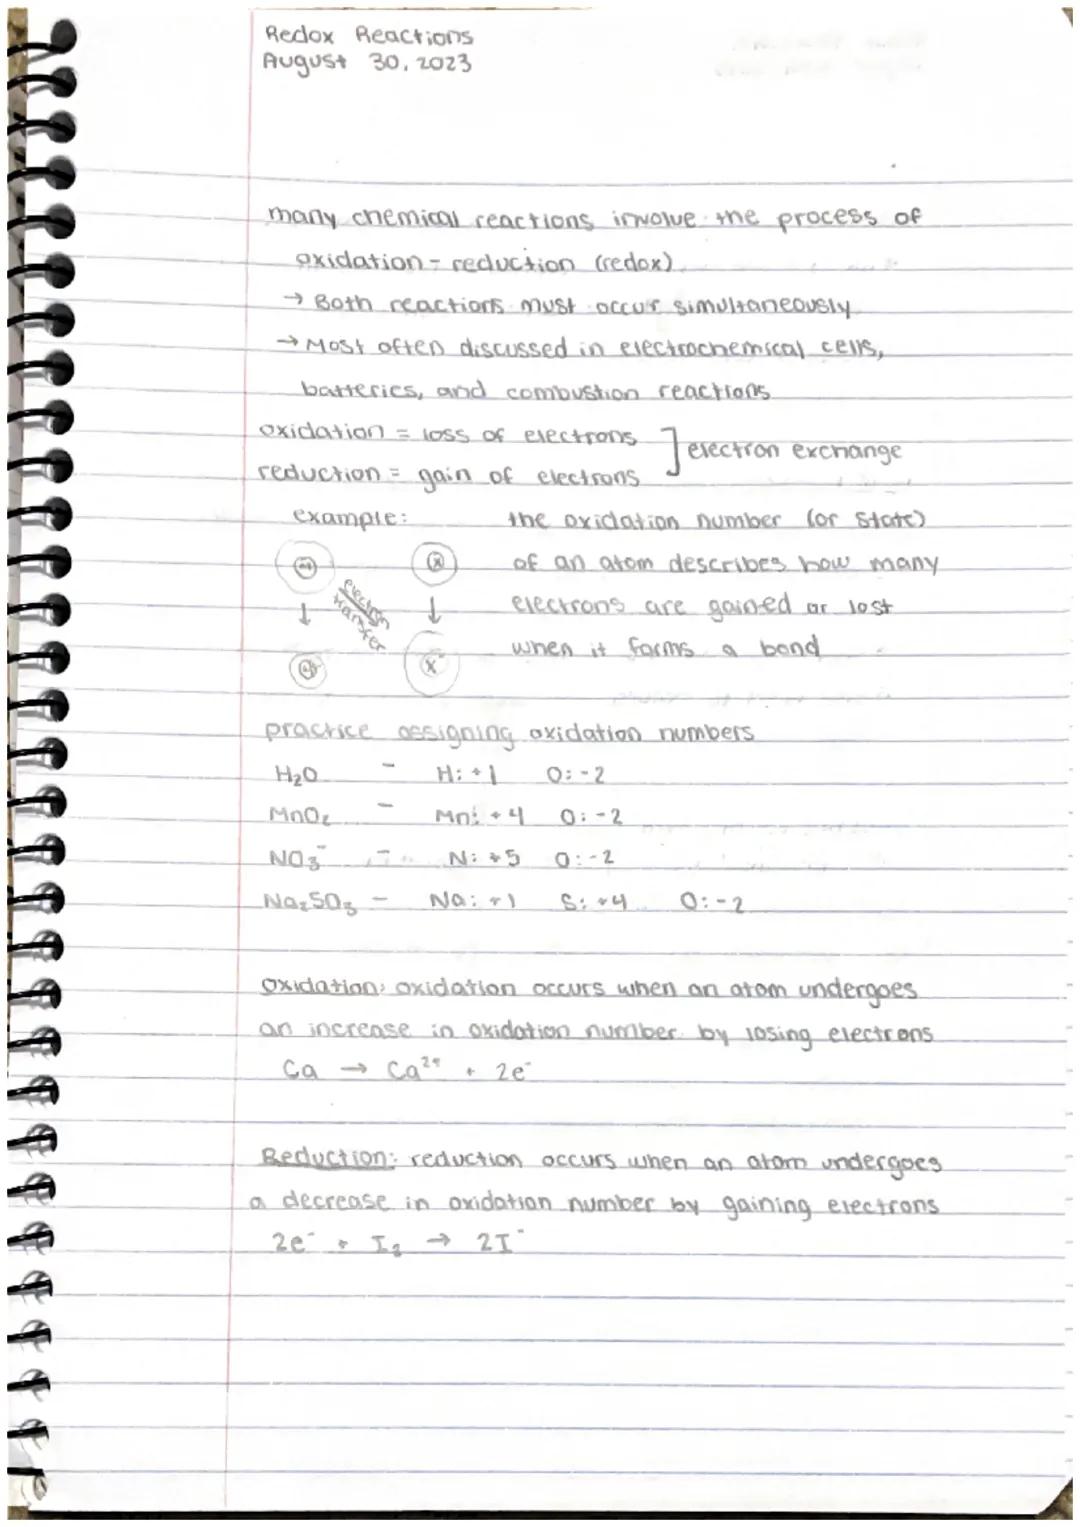 Redox Reactions
August 30, 2023
many chemical reactions involve the process of
oxidation - reduction (redox)
→ Both reactions must occur simultaneously
→ Most often discussed in electrochemical cells,
batteries, and combustion reactions
oxidation = loss of electrons
reduction = gain of electrons
] electron exchange
example:
electron
transfer
X
X⁻
the oxidation number (or state)
of an atom describes how many
electrons are gained or lost
when it forms a bond
practice assigning oxidation numbers
H₂O - H: +1 O: -2
MnO₂ - Mn: +4 O: -2
NO₃⁻ - N: +5 O: -2
Na₂SO₃ - Na: +1 S: +4 O: -2
Oxidation: oxidation occurs when an atom undergoes
an increase in oxidation number by losing electrons
Ca → Ca²⁺ + 2e⁻
Reduction: reduction occurs when an atom undergoes
a decrease in oxidation number by gaining electrons
2e⁻ + I₂ → 2I⁻